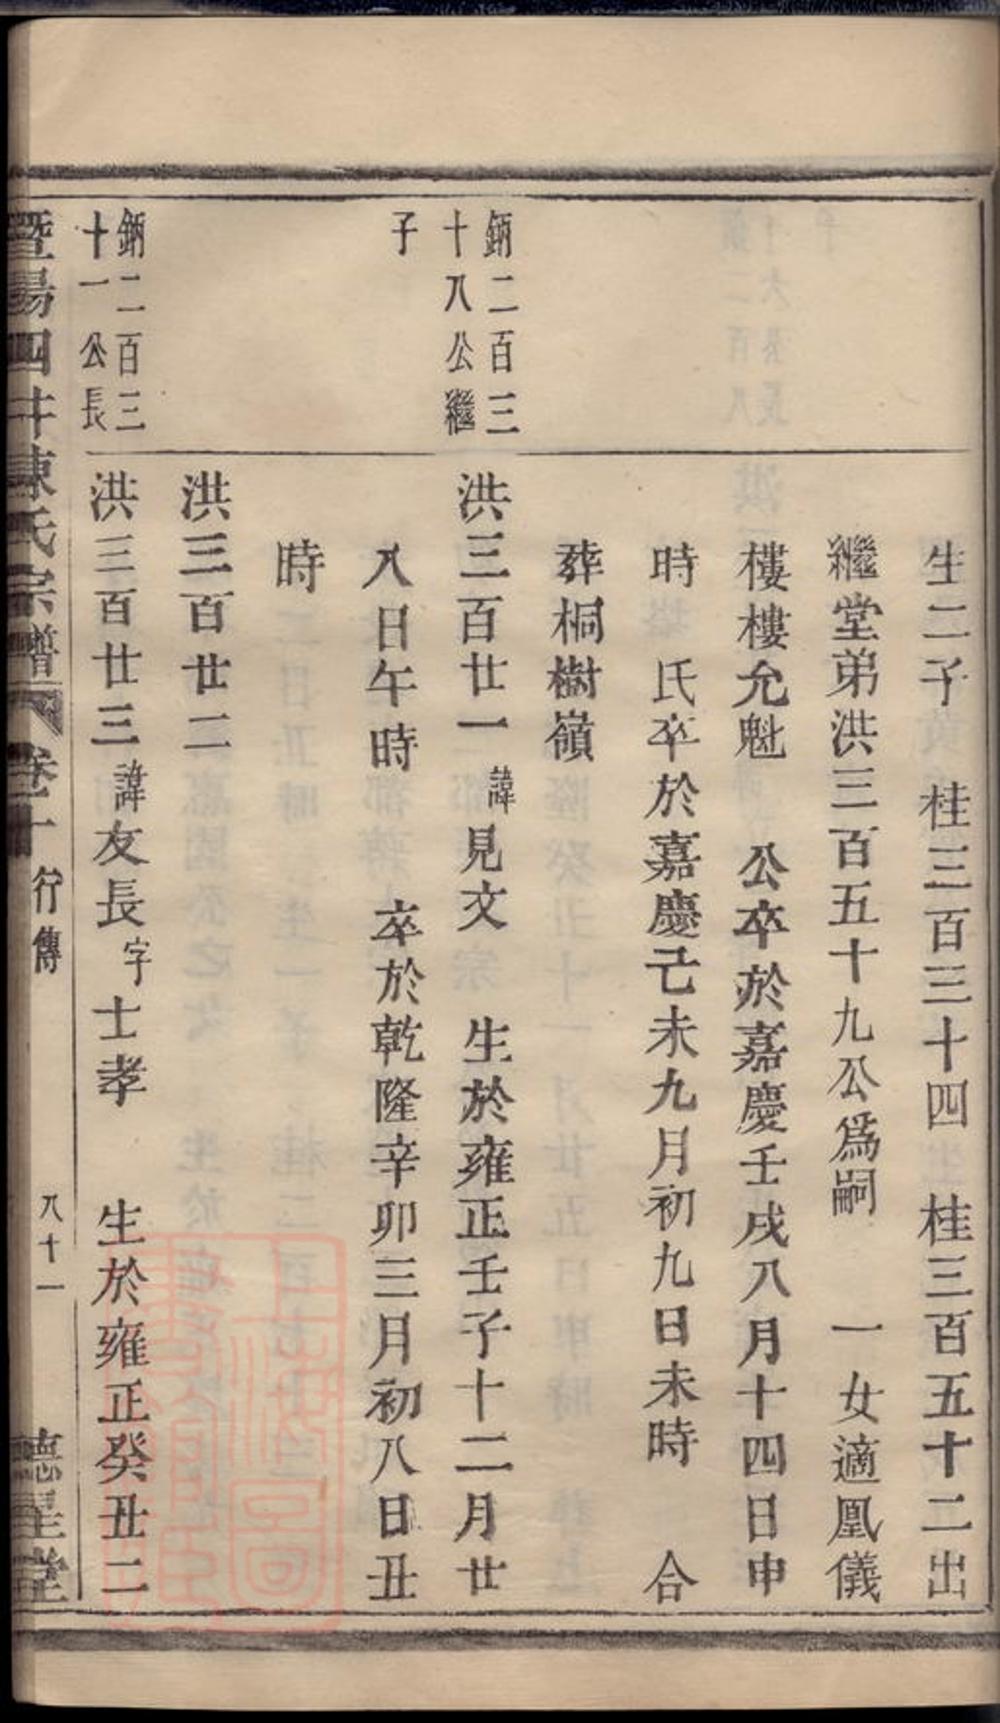 生二子　桂三百三十四　桂三百五十二出
繼堂弟洪三百五十九公爲嗣　一女適凰儀
樓樓允魁　公卒於嘉慶壬戌八月十四日申
時　氏卒於嘉慶己未九月初九日未時　合
葬桐樹嶺
鈵二百三
十八公繼
子
洪三百廿一諱見文　生於雍正壬子十二月廿
八日午時　卒於乾隆辛卯三月初八日丑
時
洪三百廿二
鈵二百三
十一公長
洪三百廿三諱友長字士孝　生於雍正癸丑二
暨陽四井陳氏宗譜　卷十　行傳　八十一　德星堂